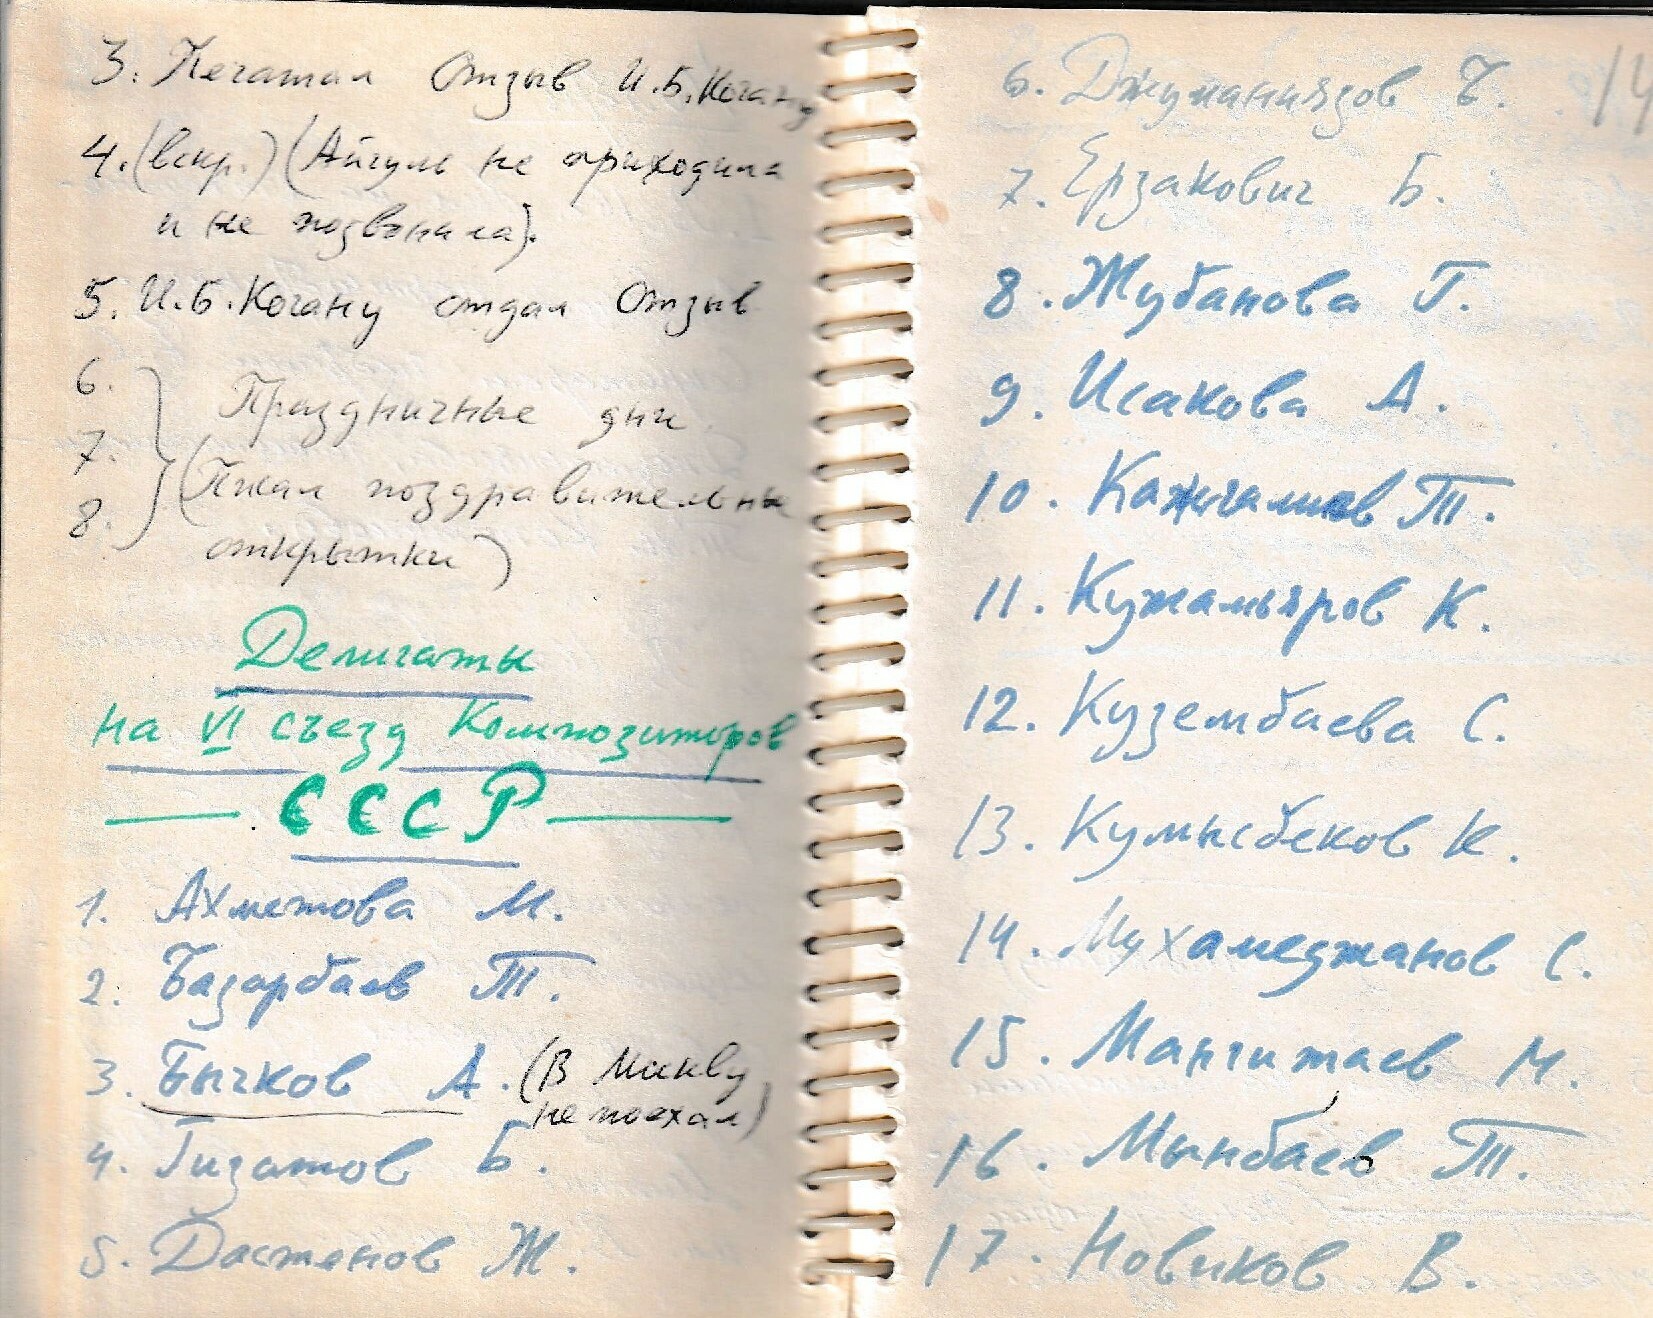 3. Печатал Отзыв И.Б.Когану
4. (вскр.) (Айгуль не приходила
и не позвонила).
5. И.Б.Когану отдал Отзыв
6.
7.
8.
Праздничные дни
(Писал поздравительные
открытки)
Делигаты
на VI съезд Композиторов
— СССР —
1. Ахметова М.
2. Базарбаев Т.
3. Бычков А. (В Москву
не поехал)
4. Гизатов Б.
5. Дастенов Ж.
14
6. Джуманиязов Б.
7. Ерзакович Б.
8. Жубанова Г.
9. Исакова А.
10. Кажгалиев Т.
11. Кужамьяров К.
12. Кузембаева С.
13. Кумысбеков К.
14. Мухамеджанов С.
15. Мангитаев М.
16. Мынбаев Т.
17. Новиков В.